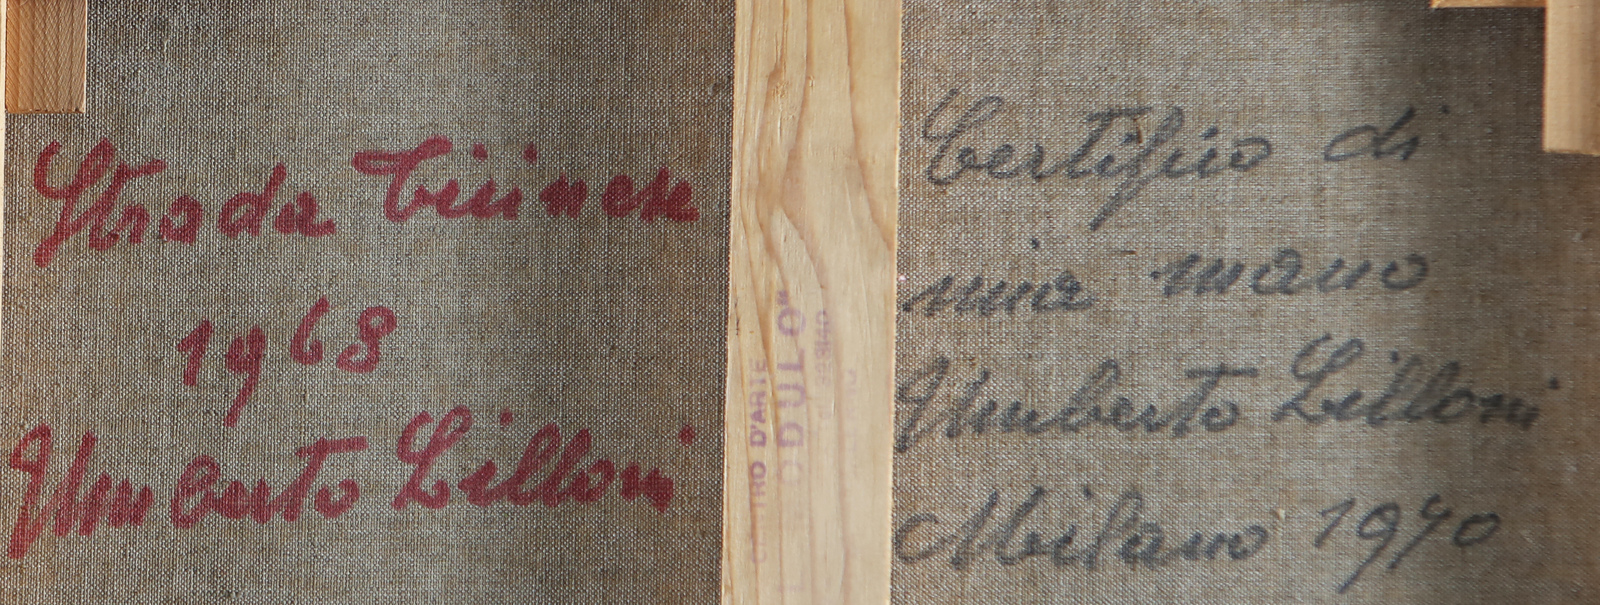 Strada Ticinese
1968
Umberto Lilloni
CENTRO D'ARTE
Certifico di
mia mano
Umberto Lilloni
Milano 1970